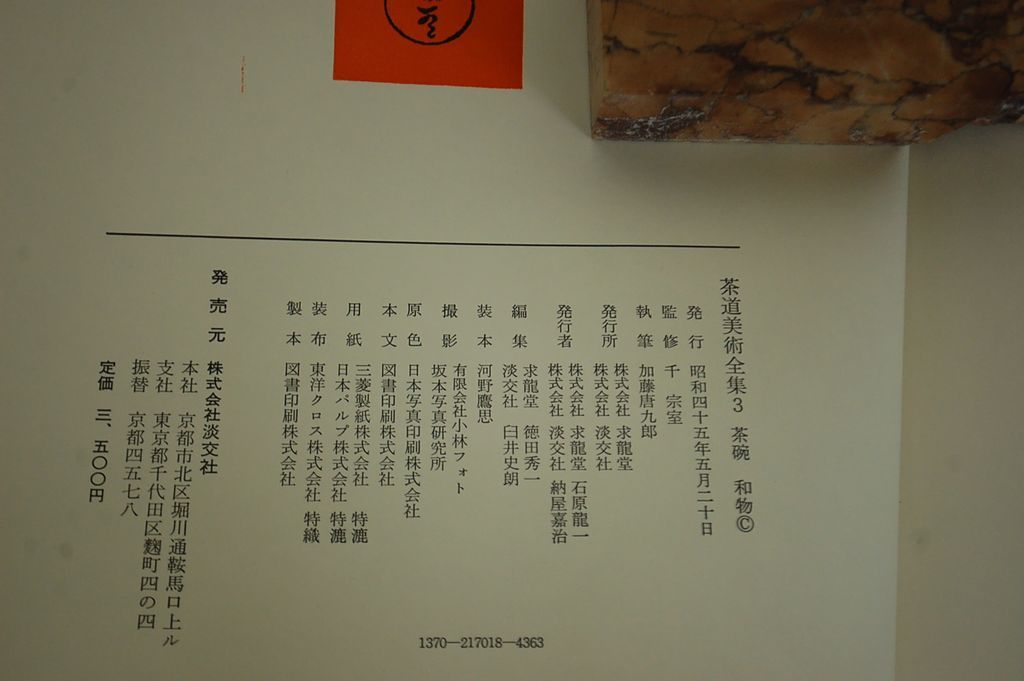 茶道美術全集3　茶碗　和物©
発行　昭和四十五年五月二十日
監修　千　宗室
執筆　加藤唐九郎
発行所　株式会社　求龍堂
株式会社　淡交社
発行者　株式会社　求龍堂　石原龍一
株式会社　淡交社　納屋嘉治
編集　求龍堂　徳田秀一
淡交社　臼井史朗
装本　河野鷹思
撮影　有限会社小林フォト
坂本写真研究所
原色　日本写真印刷株式会社
本文　図書印刷株式会社
用紙　三菱製紙株式会社　特漉
日本パルプ株式会社　特漉
装布　東洋クロス株式会社　特織
製本　図書印刷株式会社
発売元　株式会社淡交社
本社　京都市北区堀川通鞍馬口上ル
支社　東京都千代田区麴町四の四
振替　京都四五七八
定価　三、五〇〇円
1370—217018—4363